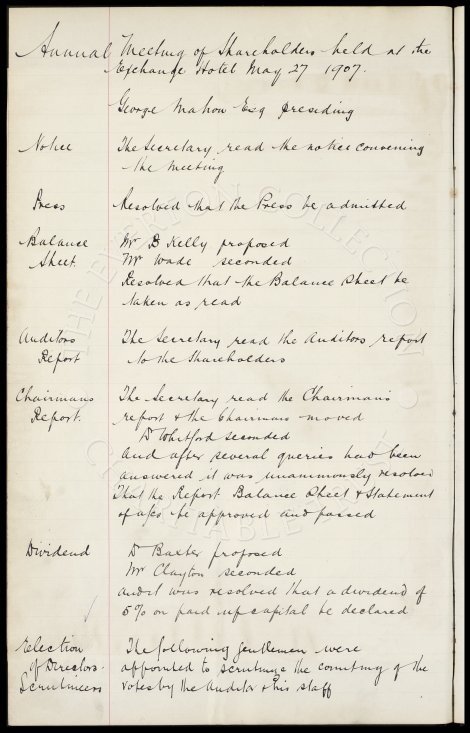 Annual Meeting of Shareholders held at the
Exchange Hotel May 27 1907.
George Mahon Esq presiding
Notice The Secretary read the notice convening
the meeting
Press Resolved that the Press be admitted
Balance Mr B Kelly proposed
Sheet. Mr Wade seconded
Resolved that the Balance Sheet be
taken as read
Auditors The Secretary read the Auditors report
Report to the Shareholders
Chairmans The Secretary read the Chairman's
Report. report & the Chairman moved
Dr Whitford seconded
and after several queries had been
answered it was unanimously resolved
That the Report Balance Sheet & Statement
of a/cs be approved and passed
Dividend Dr Baxter proposed
Mr Clayton seconded
and it was resolved that a dividend of
5% on paid up capital be declared
Election The following gentlemen were
of Directors. appointed to scrutinize the counting of the
Scrutineers votes by the Auditor & his staff
THE EVERTON COLLECTION
CHARITABLE